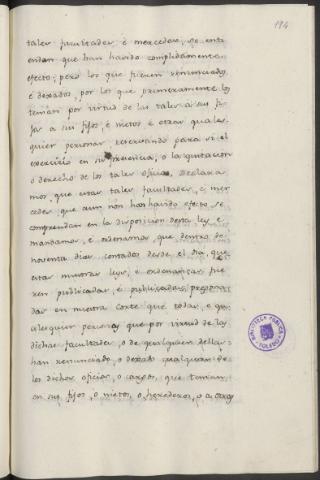 194
tales facultades, é mercedes, se enti
endan que han havido complidamente
efecto; pero los que fueren renunciados,
é dexados, por los que primeramente los
tenian por virtud de las tales a sus fi
jos a sus fijos, é nietos é otras quales
quier personas reservando para si el
exercicio en su presencia, o la quitacion
o derecho de los tales oficios. Declara
mos, que estas tales facultades, é mer
cedes que aun non han havido efecto se
comprendan en la disposicion desta ley é
mandamos, é ordenamos, que dentro de
noventa dias contados desde el dia, que
estas nuestras leyes, é ordenanzas fue
ren publicadas, é publicadas, pregona
das en nuestra Corte que todas, e qu
alesquier personas que por virtud de las
dichas facultades, o de qualquiera dellas
han renunciado, o dexado qualquier de
los dichos oficios, o cargos, que tenian
en sus fijos, o nietos, o herederos, o a otras
BIBLIOTECA PUBLICA
TOLEDO